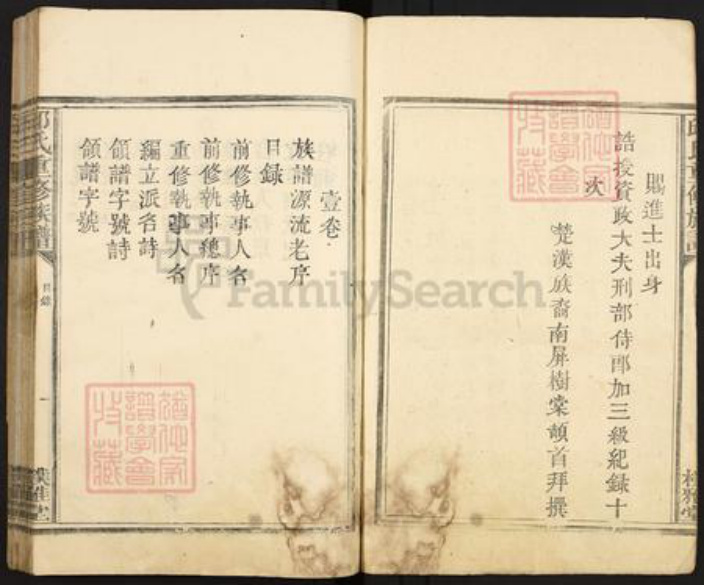 賜進士出身
誥授資政大夫刑部侍郎加三級紀錄十
次
楚漢族裔南屏樹棠頓首拜撰
壹卷
族譜源流老序
目錄
前修執事人名
前修執事總序
重修執事人名
編立派名詩
領譜字號詩
領譜字號
邱氏重修族譜
目錄
一
FamilySearch